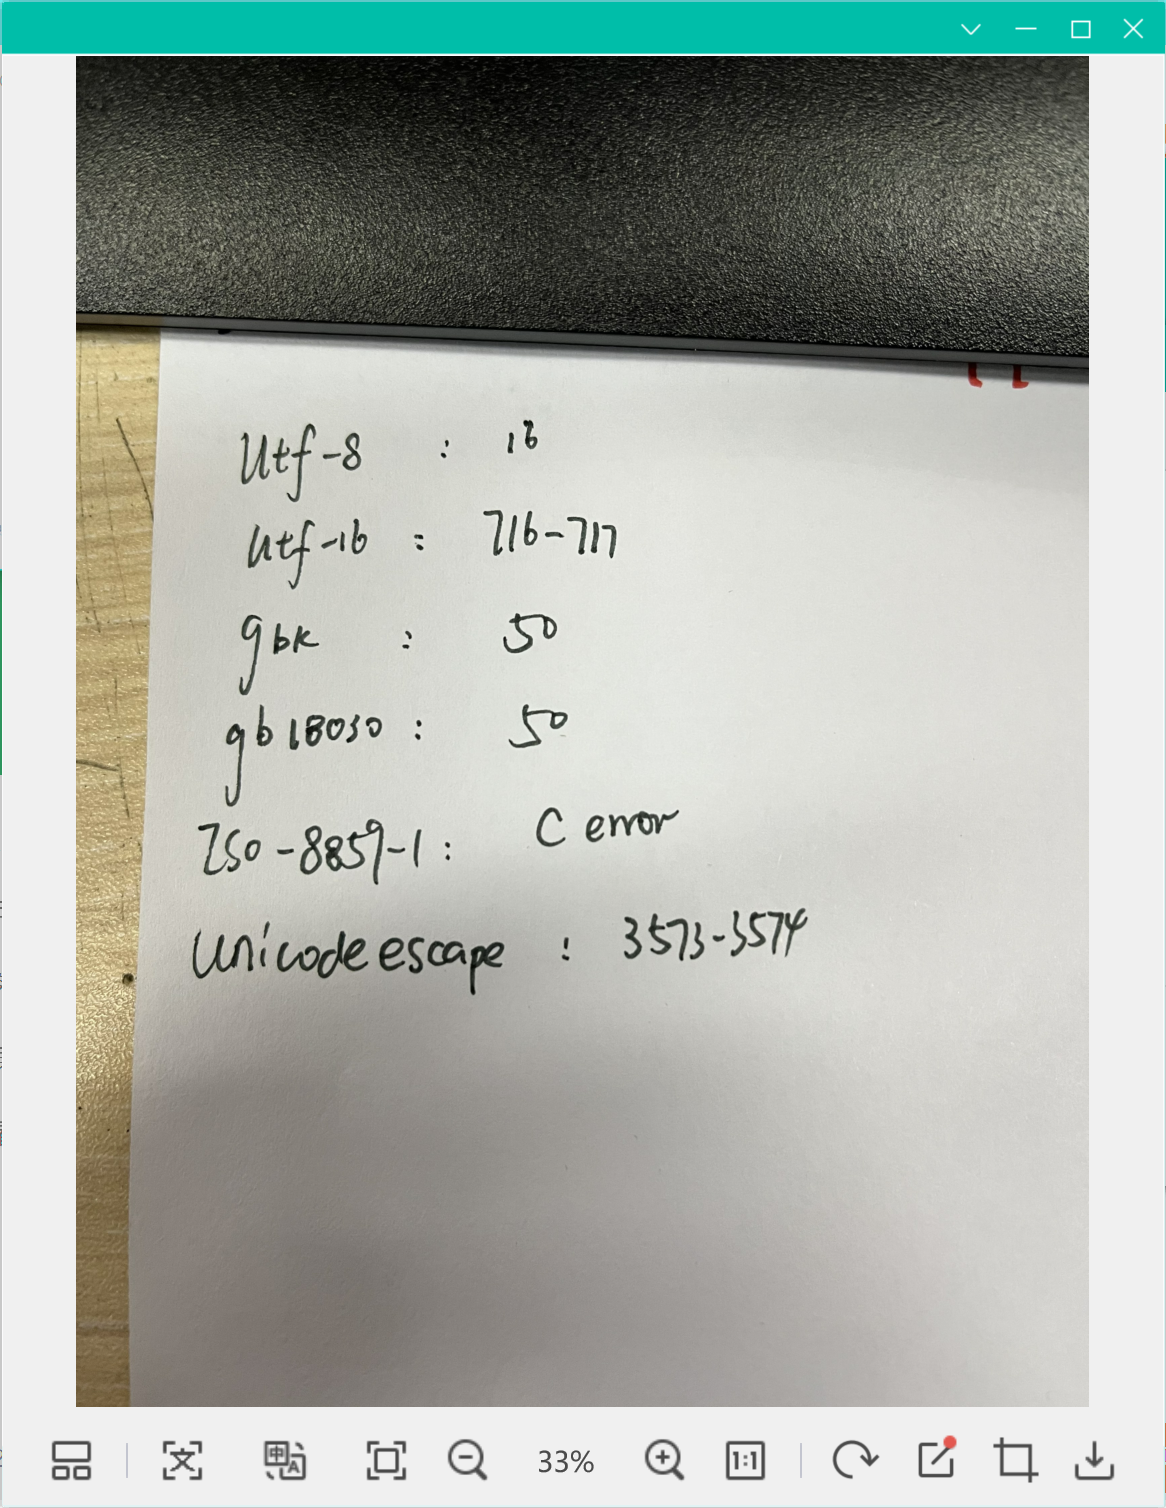 Utf-8 : 16
Utf-16 : 716-717
gbk : 50
gb18030 : 50
ISO-8859-1 : C error
Unicode escape : 3573-3574
33%
1:1